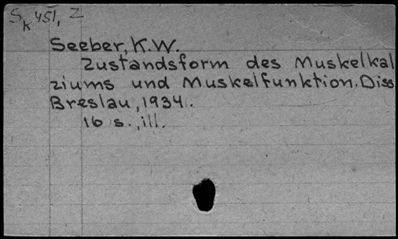 SK 451, Z
Seeber, K.W.
Zustandsform des Muskelkal
ziums und Muskelfunktion. Diss
Breslau, 1934.
16 s., ill.